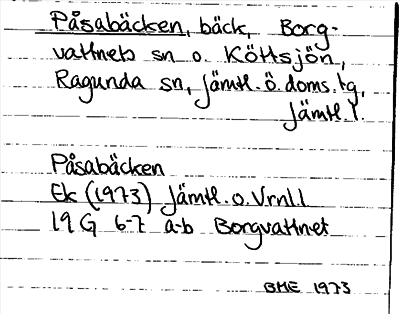 Påsabäcken, bäck, Borg-
vattnets sn o. Köttsjön,
Ragunda sn, Jämtl. ö. doms. tg,
Jämtl. l.
Påsabäcken
Ek (1973) Jämtl. o. Vrnl. l
19 G 6-7 a-b Borgvattnet
BME 1973